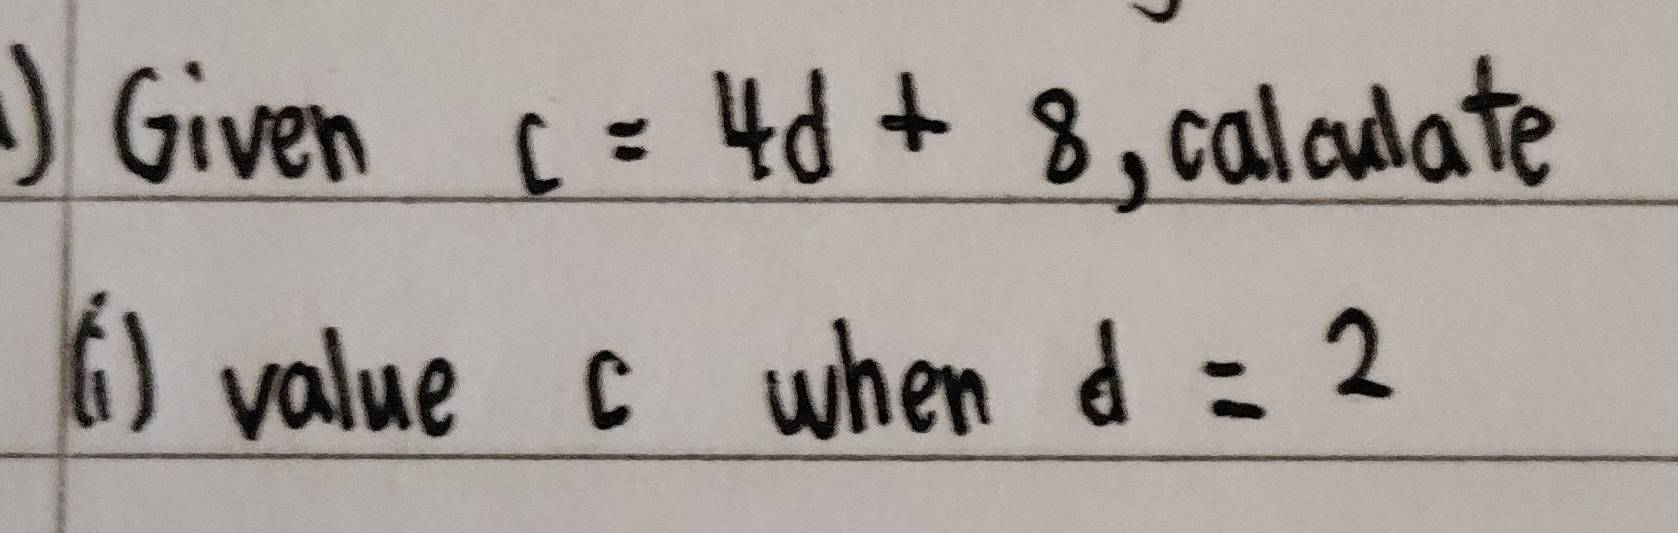 1) Given c = 4d + 8, calculate
(i) value c when d = 2